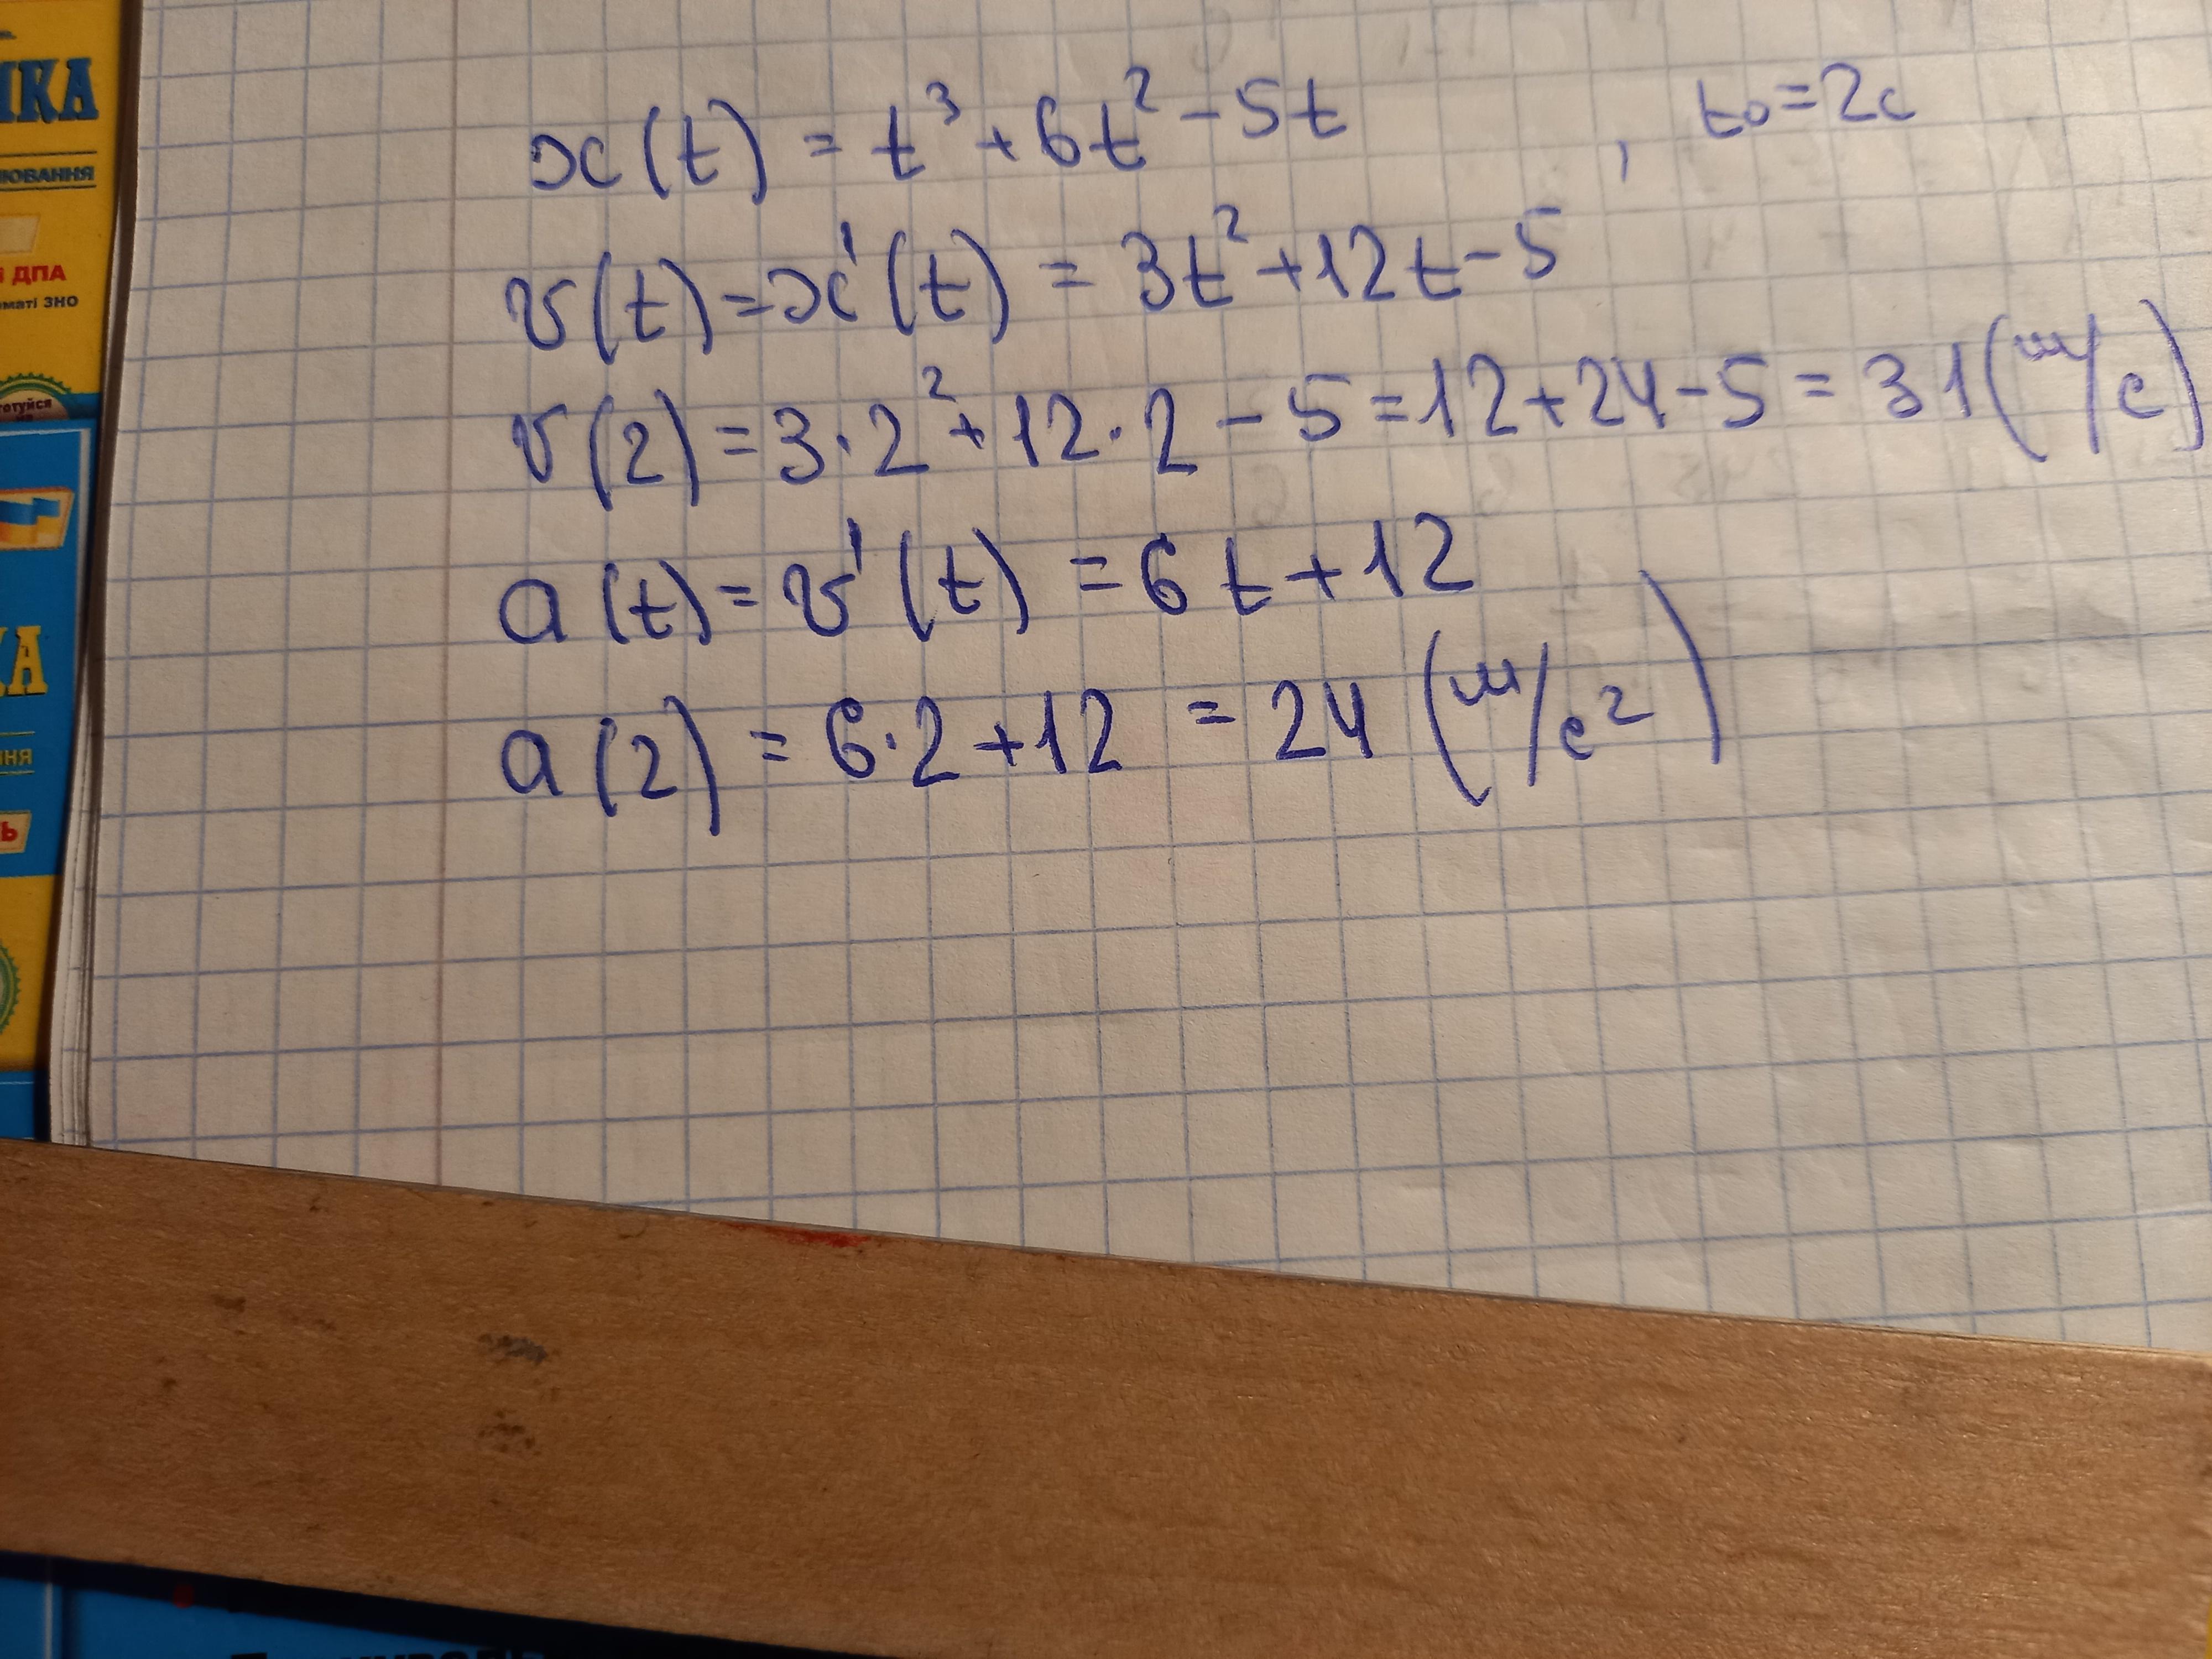 ІКА
ЮВАННЯ
ДПА
маті ЗНО
готуйся
КА
ННЯ
x(t) = t³ + 6t² - 5t , t₀ = 2c
v(t) = x'(t) = 3t² + 12t - 5
v(2) = 3·2² + 12·2 - 5 = 12 + 24 - 5 = 31 (м/c)
a(t) = v'(t) = 6t + 12
a(2) = 6·2 + 12 = 24 (м/c²)